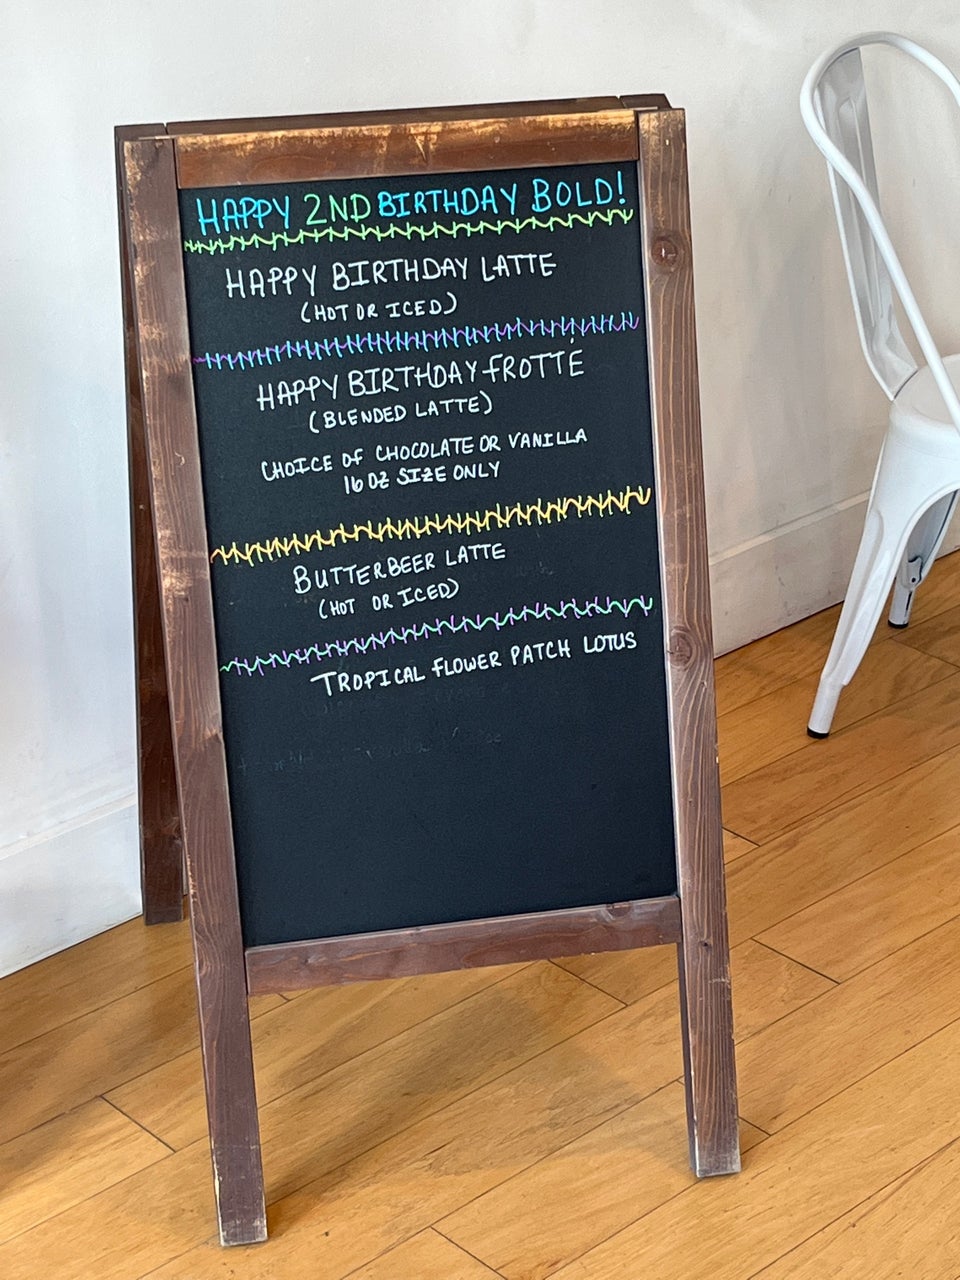 HAPPY 2ND BIRTHDAY BOLD!
HAPPY BIRTHDAY LATTE
(HOT OR ICED)
HAPPY BIRTHDAY FROTTÉ
(BLENDED LATTE)
CHOICE OF CHOCOLATE OR VANILLA
16 OZ SIZE ONLY
BUTTERBEER LATTE
(HOT OR ICED)
TROPICAL FLOWER PATCH LOTUS